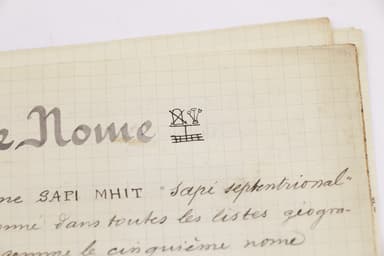 e Nome
me SAPI MHIT "Sapi septentrional"
onné dans toutes les listes géogra-
comme le cinquième nome